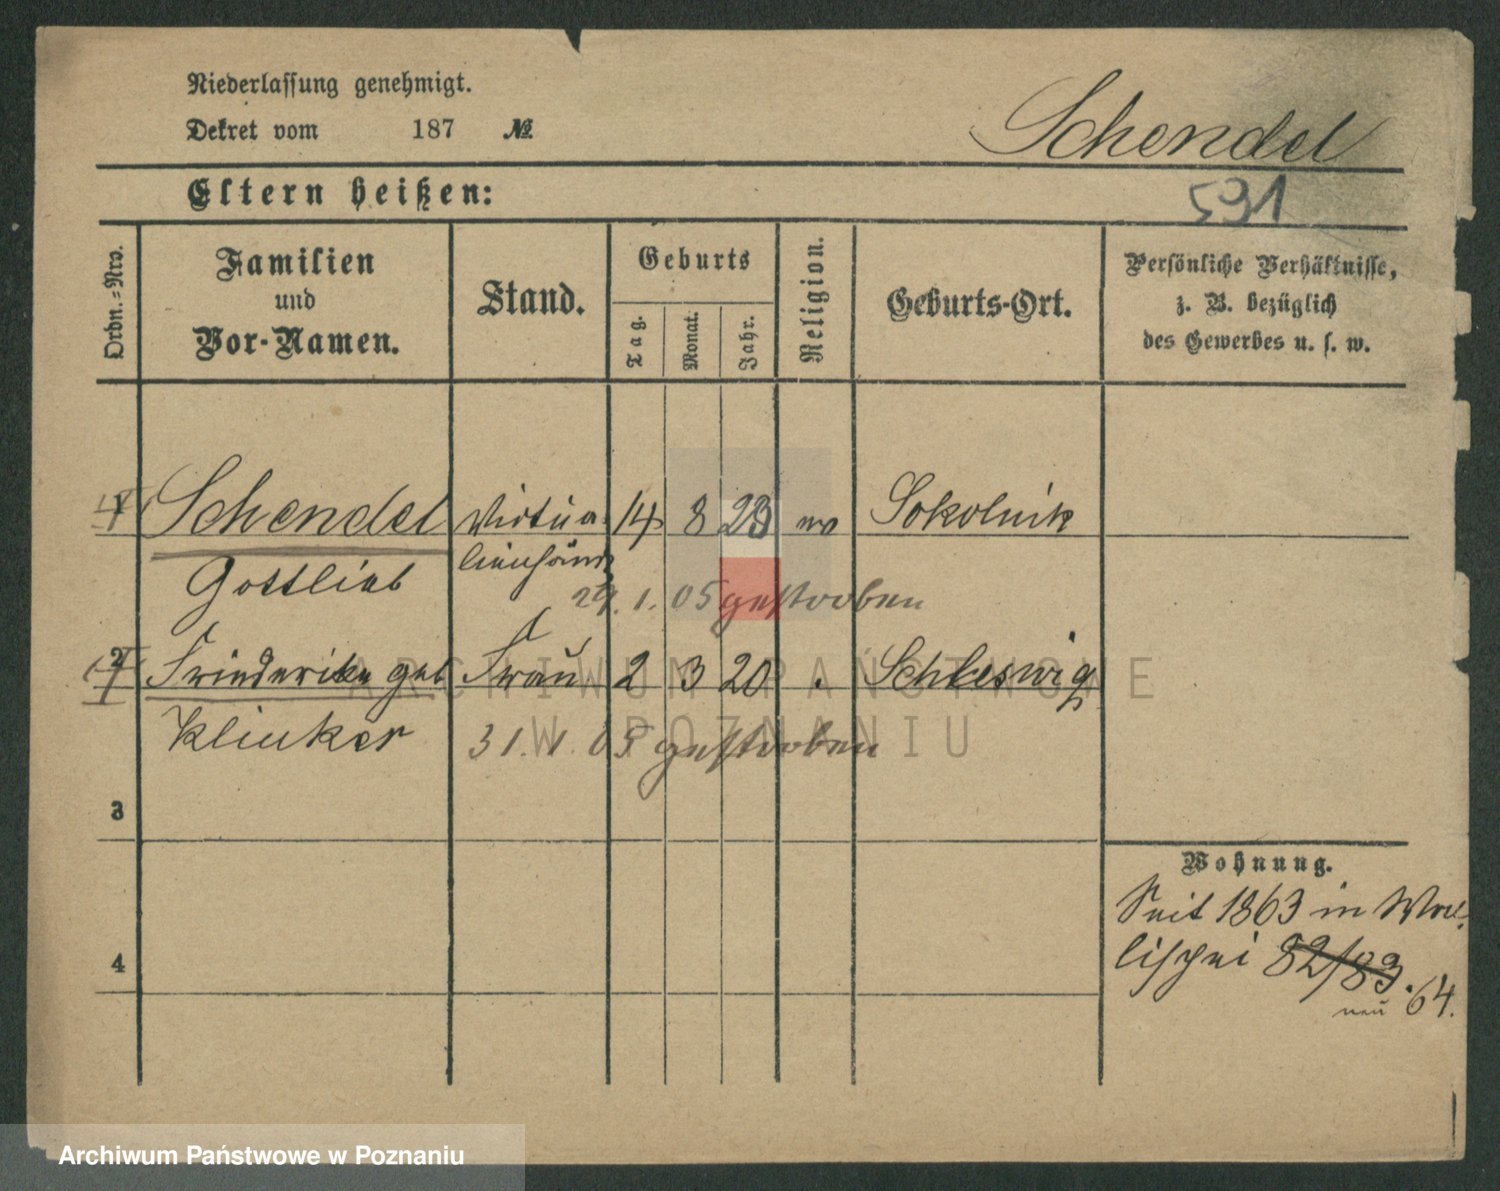 Niederlassung genehmigt.
Dekret vom 187 №
Schendel
Eltern heißen:
591
Ordn.=Nro.
Familien
und
Vor-Namen.
Stand.
Geburts
Tag.
Monat.
Jahr.
Religion.
Geburts-Ort.
Persönliche Verhältnisse,
z. B. bezüglich
des Gewerbes u. s. w.
1 Schendel Viktua- 14 8 23 Sokolnik
Gottlieb lienhändl
29. 1. 05 gestorben
2 Friederike geb Frau 2 3 20 Schleswig
Klinker 31. 1. 05 gestorben
3
4
Wohnung.
Seit 1863 in Wal-
lischei 82/83.
neu 64.
ARCHIWUM PAŃSTWOWE
W POZNANIU
Archiwum Państwowe w Poznaniu